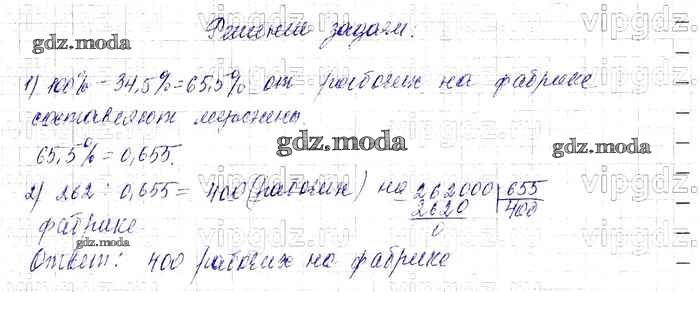 vipgdz.
Решение задачи:
gdz.moda
1) 100% - 34,5% = 65,5% от рабочих на фабрике
составляют мужчины.
gdz.moda
65,5% = 0,655.
2) 262 : 0,655 = 400 (рабочих) на 262000 | 655
2620 400
0
фабрике
gdz.moda
Ответ: 400 рабочих на фабрике